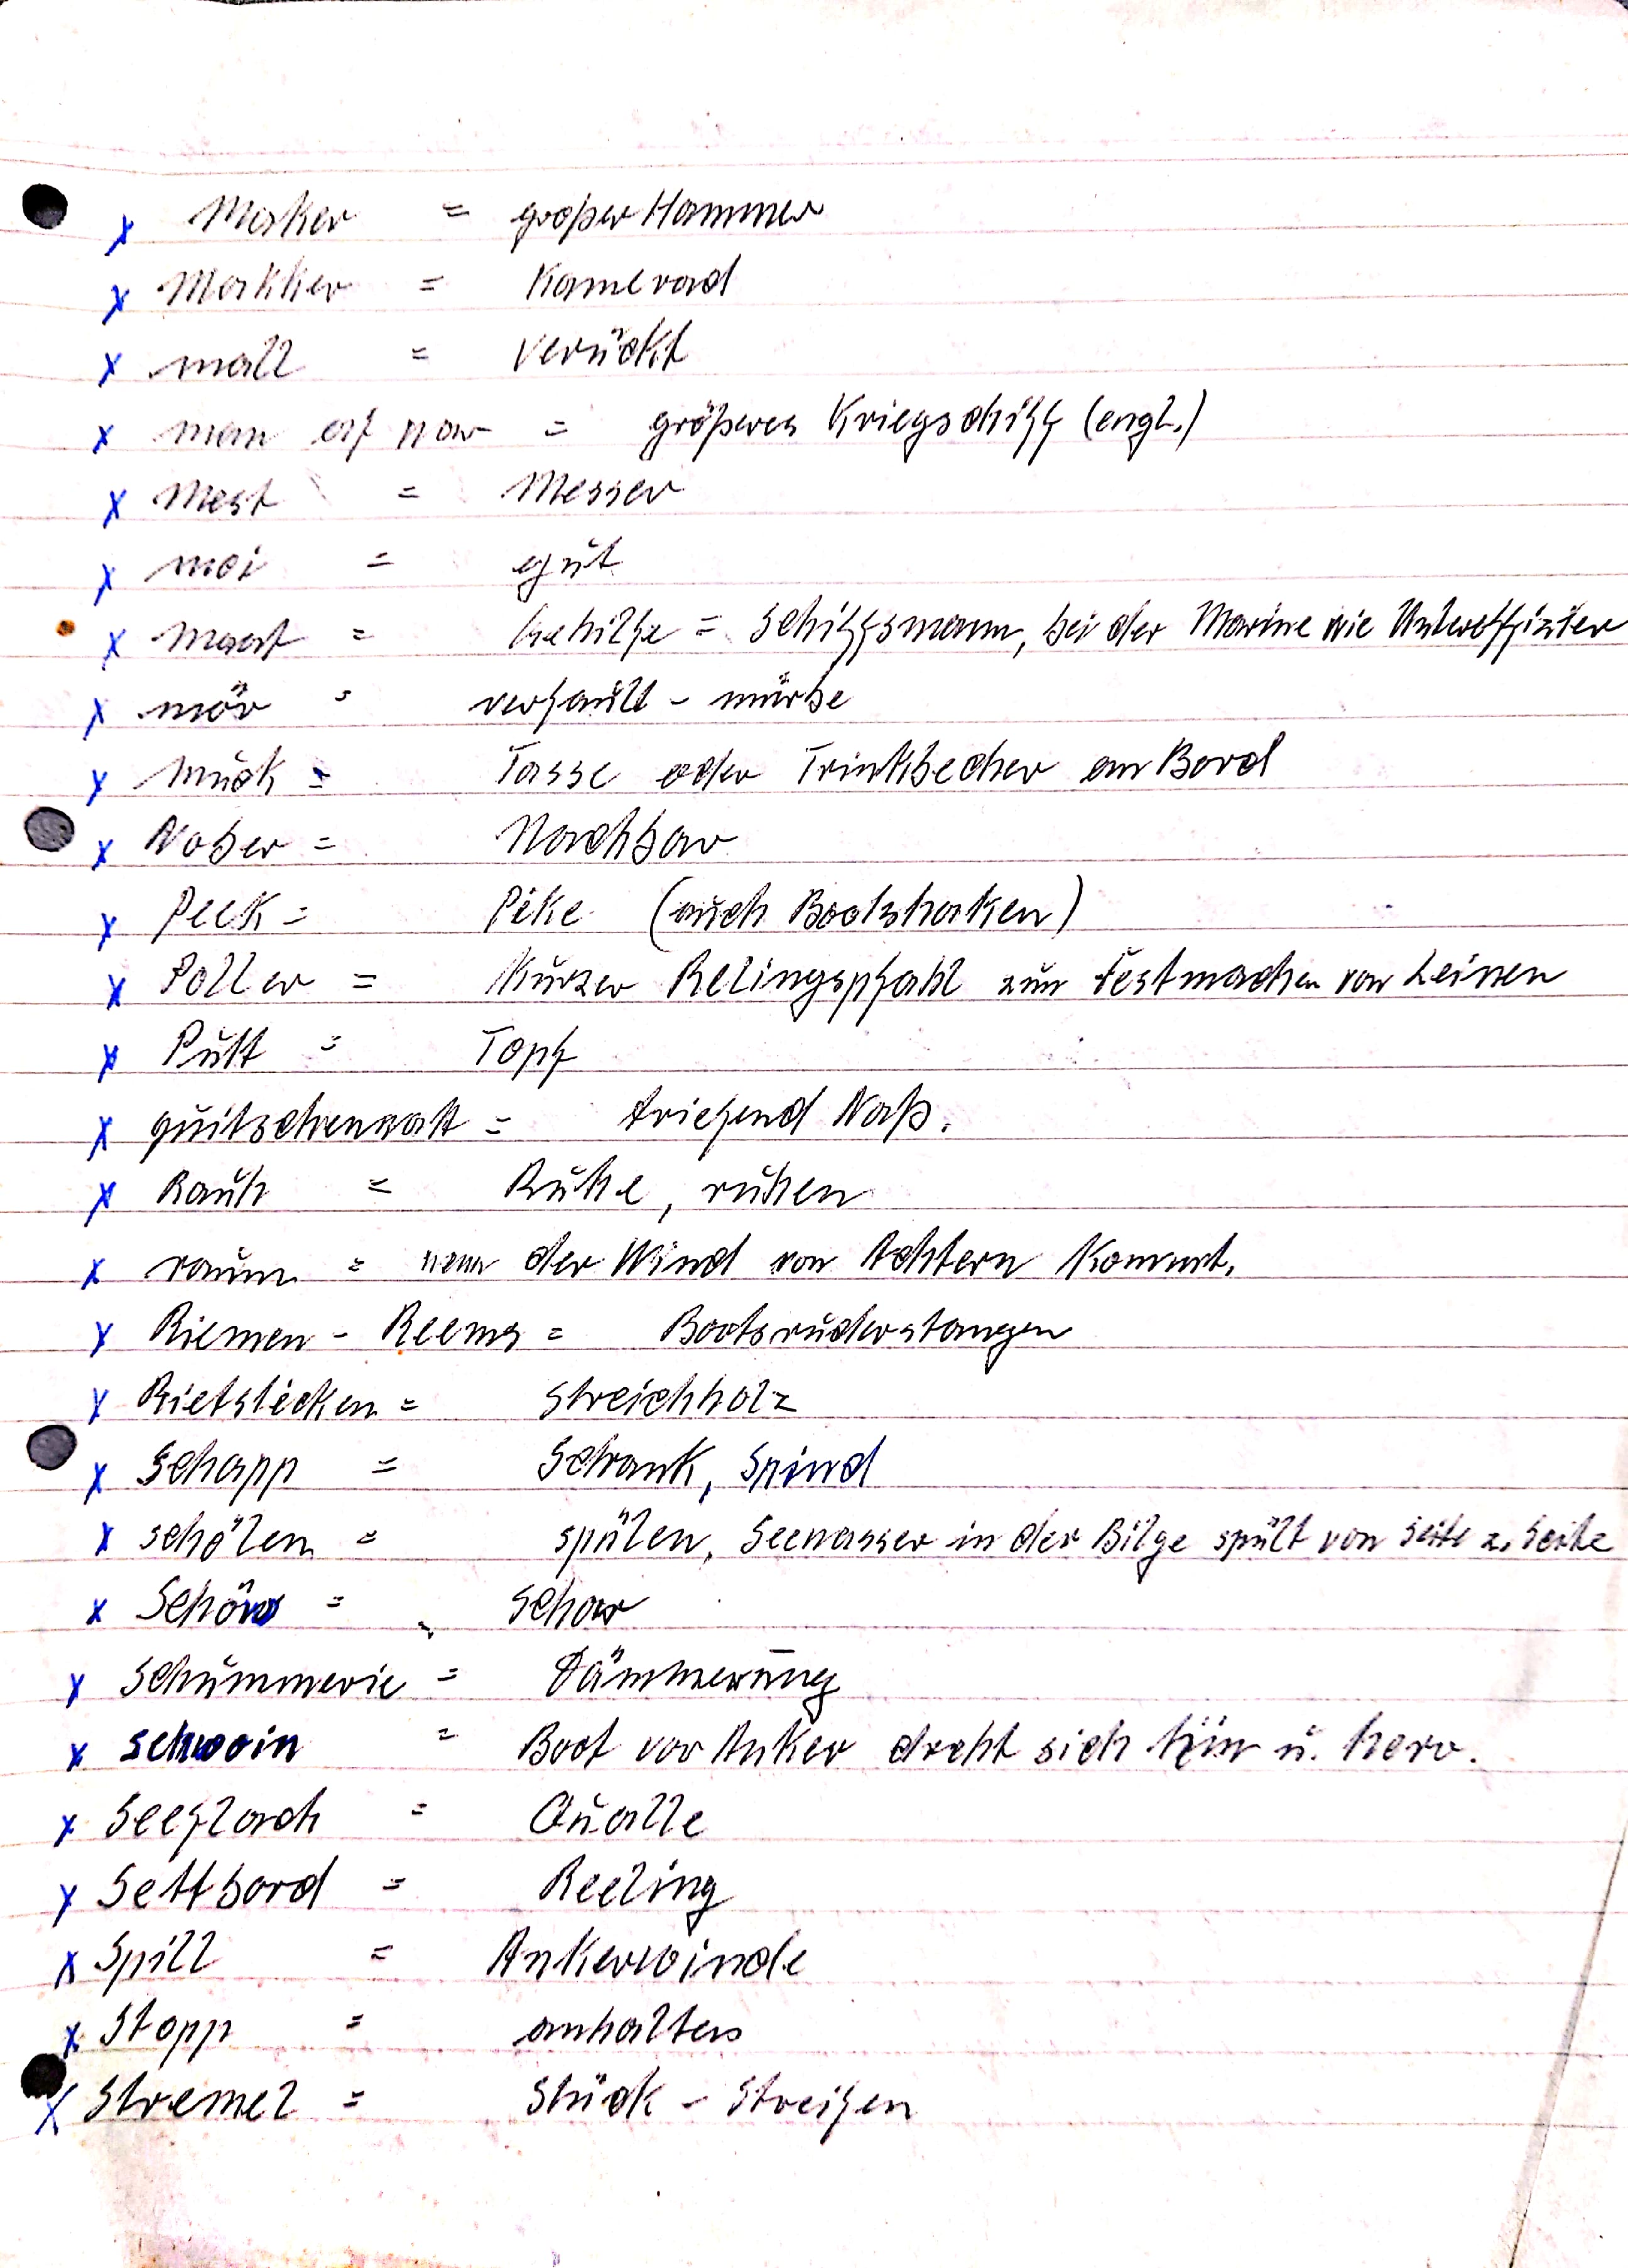 x Moker = großer Hammer
x Makker = Kamerad
x mall = verückt
x man of war = größeres Kriegschiff (engl.)
x Mest = Messer
x moi = gut
x Maat = Gehilfe = Schiffsmann, bei der Marine wie Unteroffizier
x mör = verfault - mürbe
x Muck = Tasse oder Trinkbecher an Bord
x Nober = Nachbar
x Peek = Pike (auch Bootshaken)
x Poller = Kurzer Relingspfahl zum Festmachen von Leinen
x Putt = Topf
x quitschenatt = triefend Naß.
x Rauh = Ruhe, ruhen
x raum = wenn der Wind von Achtern Kommt.
x Riemen - Reems = Bootsruderstangen
x Rietsticken = Streichholz
x Schapp = Schrank, Spind
x schölen = spülen, Seewasser in der Bilge spült von Seite z. Seite
x Schöw = Schar
x Schummerie = Dämmerung
x schwoin = Boot vor Anker dreht sich hin u. herr.
x Seeflach = Qualle
x Settbord = Reeling
x Spill = Ankerwinde
x Stopp = anhalten
x Stremel = Stück - Streifen